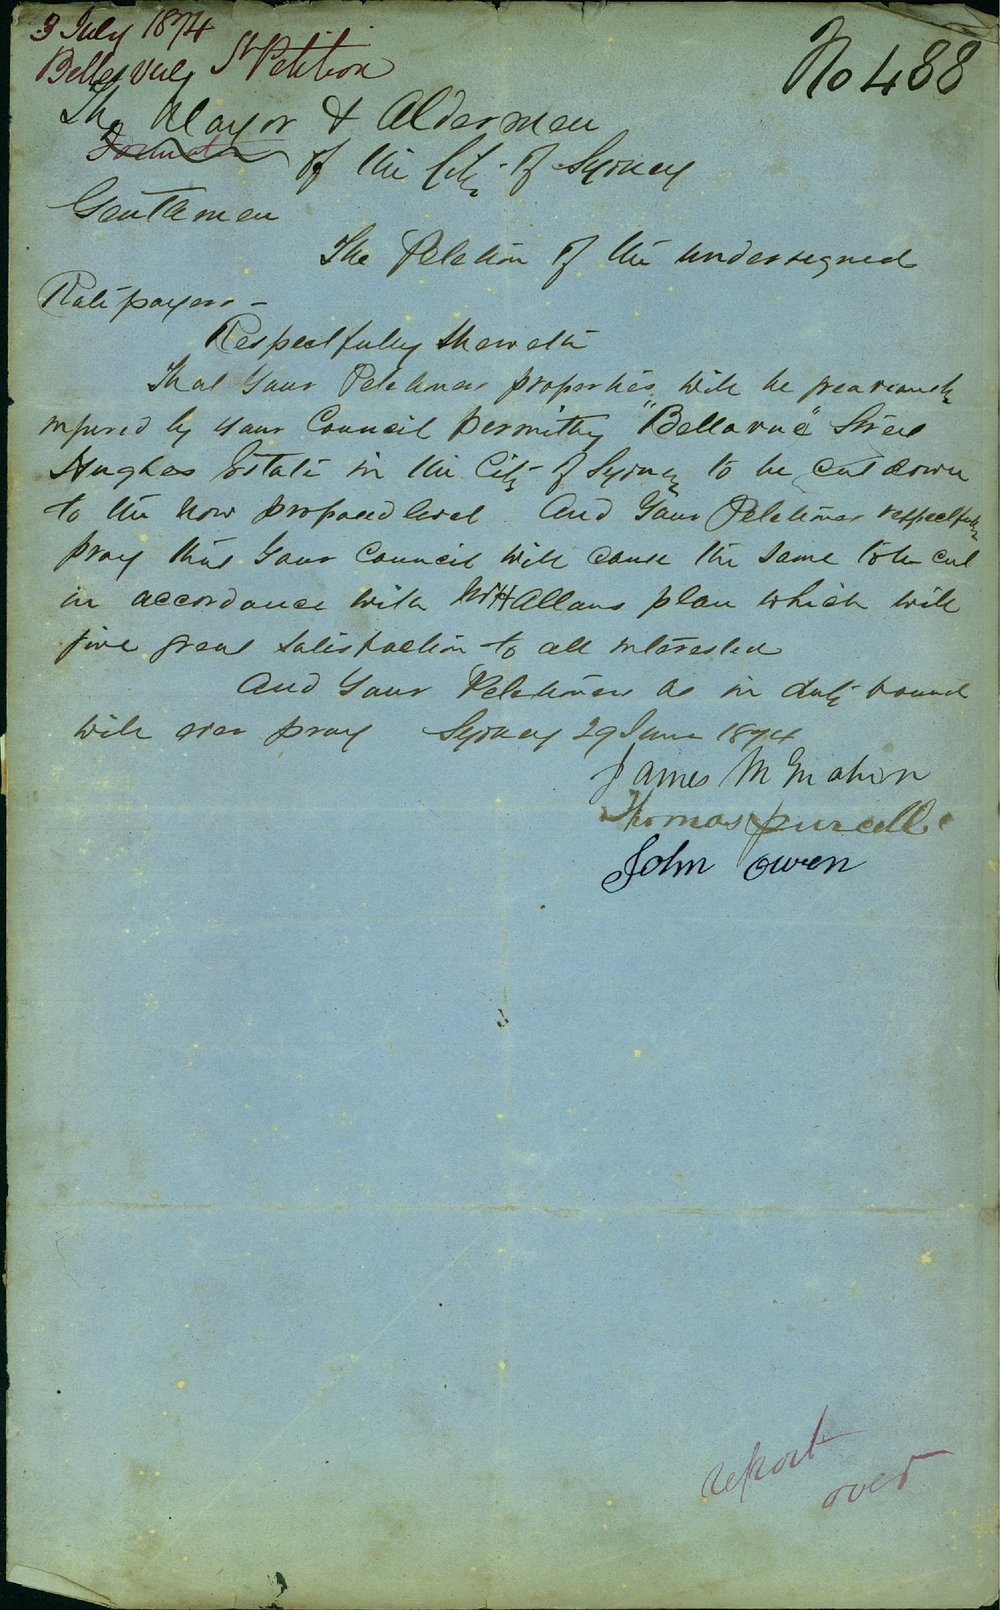 3 July 1874
No 488
Bellevue St Petition
The Mayor & Aldermen
of the City of Sydney
Gentlemen
The Petition of the undersigned
Ratepayers -
Respectfully sheweth
That Your Petitioners properties will be greviously
injured by your Council permitting "Bellavue" Street
Hughes Estate in the City of Sydney to be cut down
to the now proposed level And Your Petitioners respectfully
pray that Your Council will cause the same to be cut
in accordance with Allans plan which will
give great satisfaction to all interested
And Your Petitioners as in duty bound
will ever pray Sydney 29 June 1874
James McMahon
Thomas purcell
John Owen
report
over